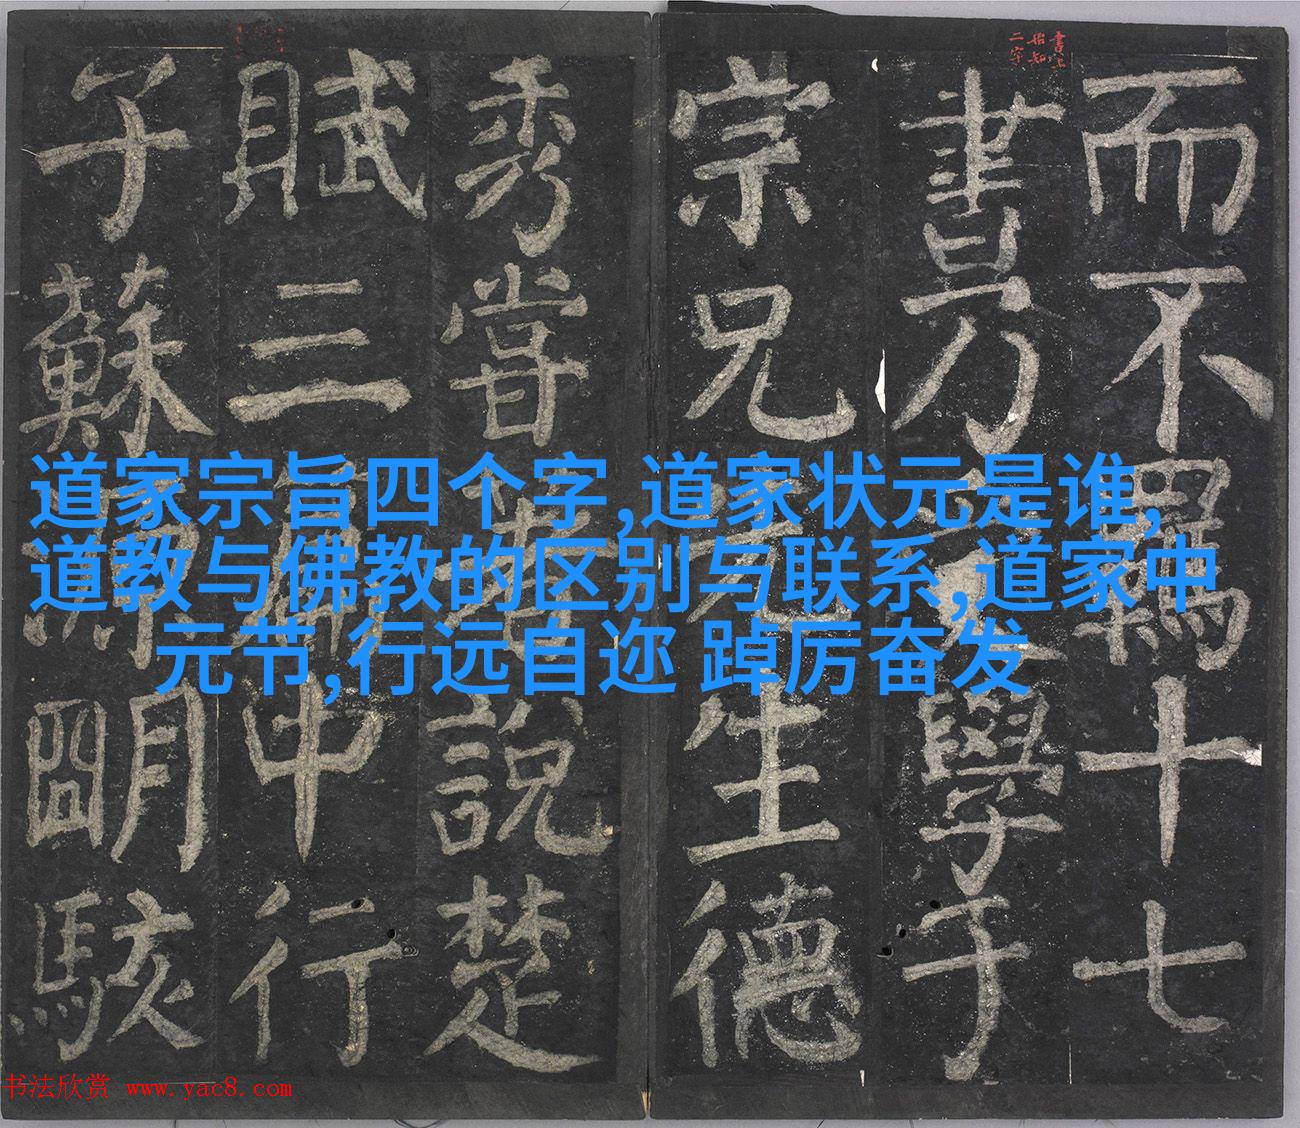 書上
始知
二字
而不羈十七
書乃學于
宗兄先生德
秀嘗說楚
賦三中行
子蘇明駭
道家宗旨四个字,道家状元是谁,
道教与佛教的区别与联系,道家中
元节,行远自迩 踔厉奋发
书法欣赏 www.yac8.com